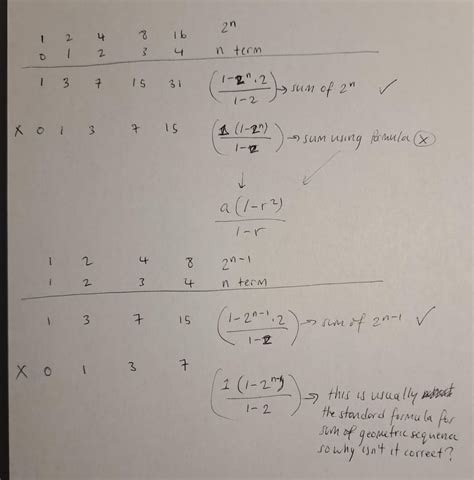 1 2 4 8 16 2^n
0 1 2 3 4 n term
1 3 7 15 31 (1-2^n·2 / 1-2) → sum of 2^n ✓
X 0 1 3 7 15 (1(1-2^n) / 1-2) → sum using formula ⓧ
a(1-r^2) / 1-r
1 2 4 8 2^n-1
1 2 3 4 n term
1 3 7 15 (1-2^n-1·2 / 1-2) → sum of 2^n-1 ✓
X 0 1 3 7 (1(1-2^n-1) / 1-2) → this is usually
the standard formula for
sum of geometric sequence
so why isn't it correct?